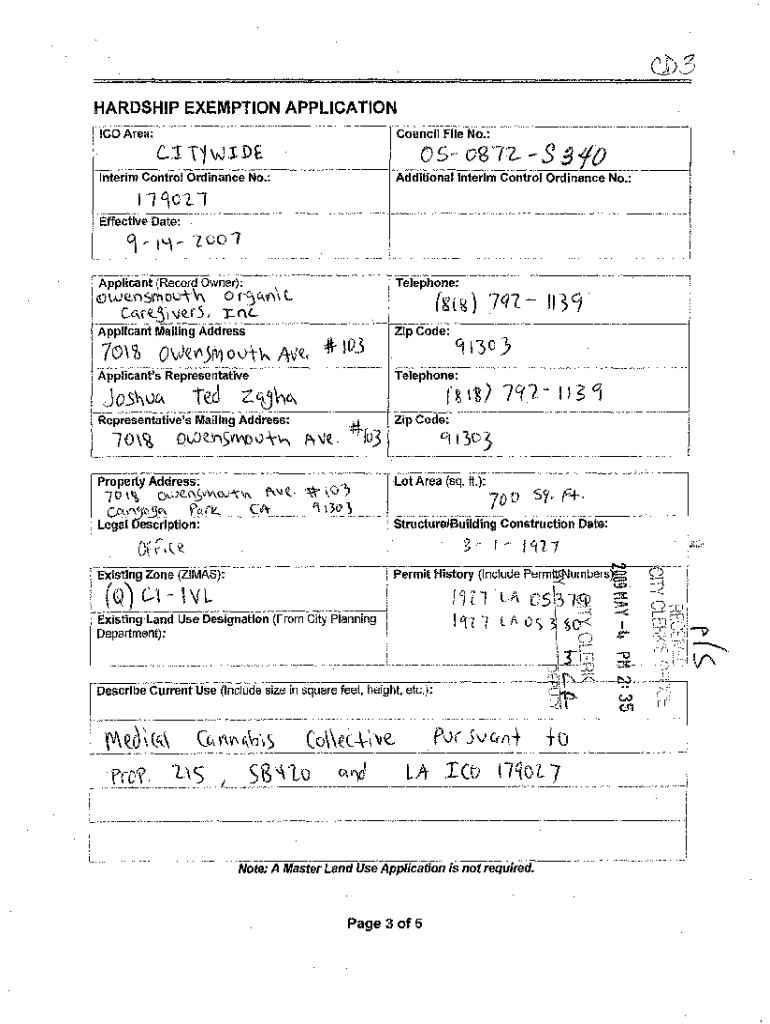 CD3
HARDSHIP EXEMPTION APPLICATION
ICO Area:
CITYWIDE
Council File No.:
05-0872-S340
Interim Control Ordinance No.:
179027
Additional Interim Control Ordinance No.:
Effective Date:
9-14-2007
Applicant (Record Owner):
Owensmouth Organic
Caregivers, Inc
Telephone:
(818) 792-1139
Applicant Mailing Address
7018 Owensmouth Ave. #103
Zip Code:
91303
Applicant's Representative
Joshua Ted Zagha
Telephone:
(818) 792-1139
Representative's Mailing Address:
7018 Owensmouth Ave. #103
Zip Code:
91303
Property Address:
7018 Owensmouth Ave. #103
Canoga Park CA 91303
Lot Area (sq. ft.):
700 Sq. Ft.
Legal Description:
Office
Structure/Building Construction Date:
3-1-1927
Existing Zone (ZIMAS):
(Q) C1-1VL
Permit History (Include Permit Numbers)
1927 LA 05379
1927 LA 05380
Existing Land Use Designation (From City Planning
Department):
CITY CLERK'S OFFICE
RECEIVED
2009 MAY -4 PM 2:35
CITY CLERK
DEPUTY
P/S
Describe Current Use (Include size in square feet, height, etc.):
Medical Cannabis Collective Pursuant to
Prop. 215, SB420 and LA ICO 179027
Note: A Master Land Use Application is not required.
Page 3 of 5